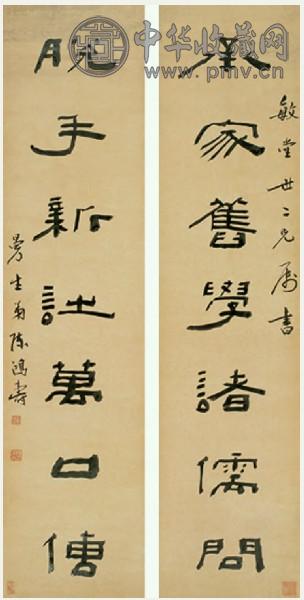 中华收藏网
www.pmv.cn
敏堂世二兄屬書
承家舊學諸儒問
脫手新詩萬口傳
曼生弟陳鴻壽